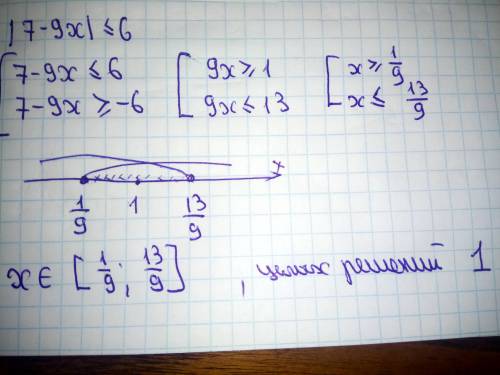 |7-9x| ≤ 6
[ 7-9x ≤ 6 [ 9x ≥ 1 [ x ≥ 1/9
7-9x ≥ -6 9x ≤ 13 x ≤ 13/9
x
1/9 1 13/9
x ∈ [1/9; 13/9], целых решений 1